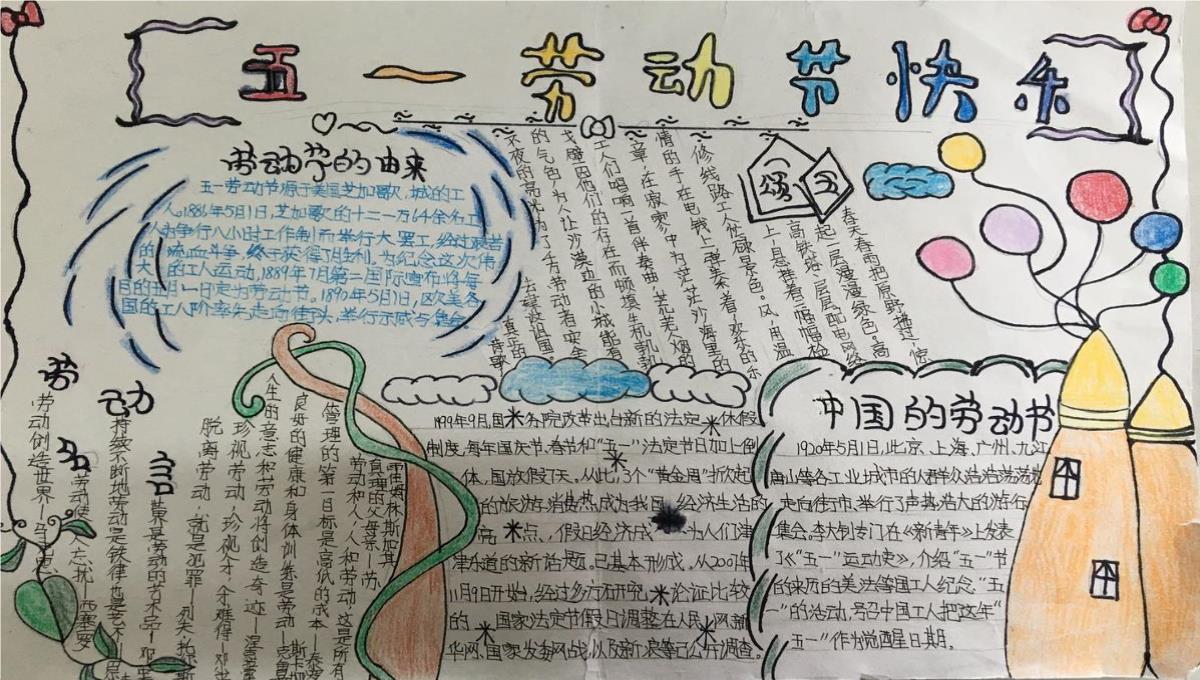 五一劳动节快乐
劳动节的由来
五一劳动节源于美国芝加歌城的工
人。1886年5月1日,芝加歌的十二一万64余名工
人为争行八小时工作制而举行大罢工,经过艰苦
的流血斗争,终于获得了胜利。为纪念这次伟
大的工人运动,1889年7月第二国际宣布将每
年的五月一日定为劳动节。1890年5月1日,欧美各
国的工人阶率先走向街头,举行示威与集会
颂五
春天春雨把原野拂过,惊
起一层漫漫绿色。高
高铁塔,层层配电网络
上,悬挂着一幅幅检
修线路工人忙碌景色。风,用温
情的手,在电线上弹奏着,欢乐的乐
章,在寂寥中为茫茫沙海里的
工人们唱响一首伴奏曲,荒芜人烟的
戈壁因他们的存在而顿填生机勃勃
的气色,为人让沙漠边的小城能有
不夜的亮光为了千万劳动者安全
劳动名言
劳动创造世界—马克思
劳动使人忘忧—西塞罗
持续不断地劳动是铁律也是艺术
脱离劳动,就是犯罪—列夫·托尔斯
珍视劳动,珍视人才,人才难得—邓
人生的意志和劳动将创造奇迹—涅
良好的健康和身体训练是劳动—克鲁
管理的第一目标是高低的成本—泰
劳动和人,人和劳动,这是所有
真理的父母亲—苏
霍姆林斯加其
1999年9月,国务院改革出台新的法定休假
制度,每年国庆节、春节和“五一”法定节日加上倒
休,国放假7天,从此,3个“黄金周”掀欠起
的旅游消费热成为我国经济生活的
亮点,假日经济成为人们津
津乐道的新话题,已基本形成,从2007年
11月9日开始,经过多方研究论证比较
的国家法定节假日调整在人民网、新
华网、国家发委网战,以及新浪等已公开调查。
中国的劳动节
1920年5月1日,北京、上海、广州、九江
唐山等各工业城市的人群众浩浩荡荡地
走向街市、举行了声势浩大的游行、
集会。李大钊专门在《新青年》上发表
了《“五一”运动史》,介绍“五一”节
的来历的美法等国工人纪念“五
一”的活动,号召中国工人把这年“
五一”作为觉醒日期。